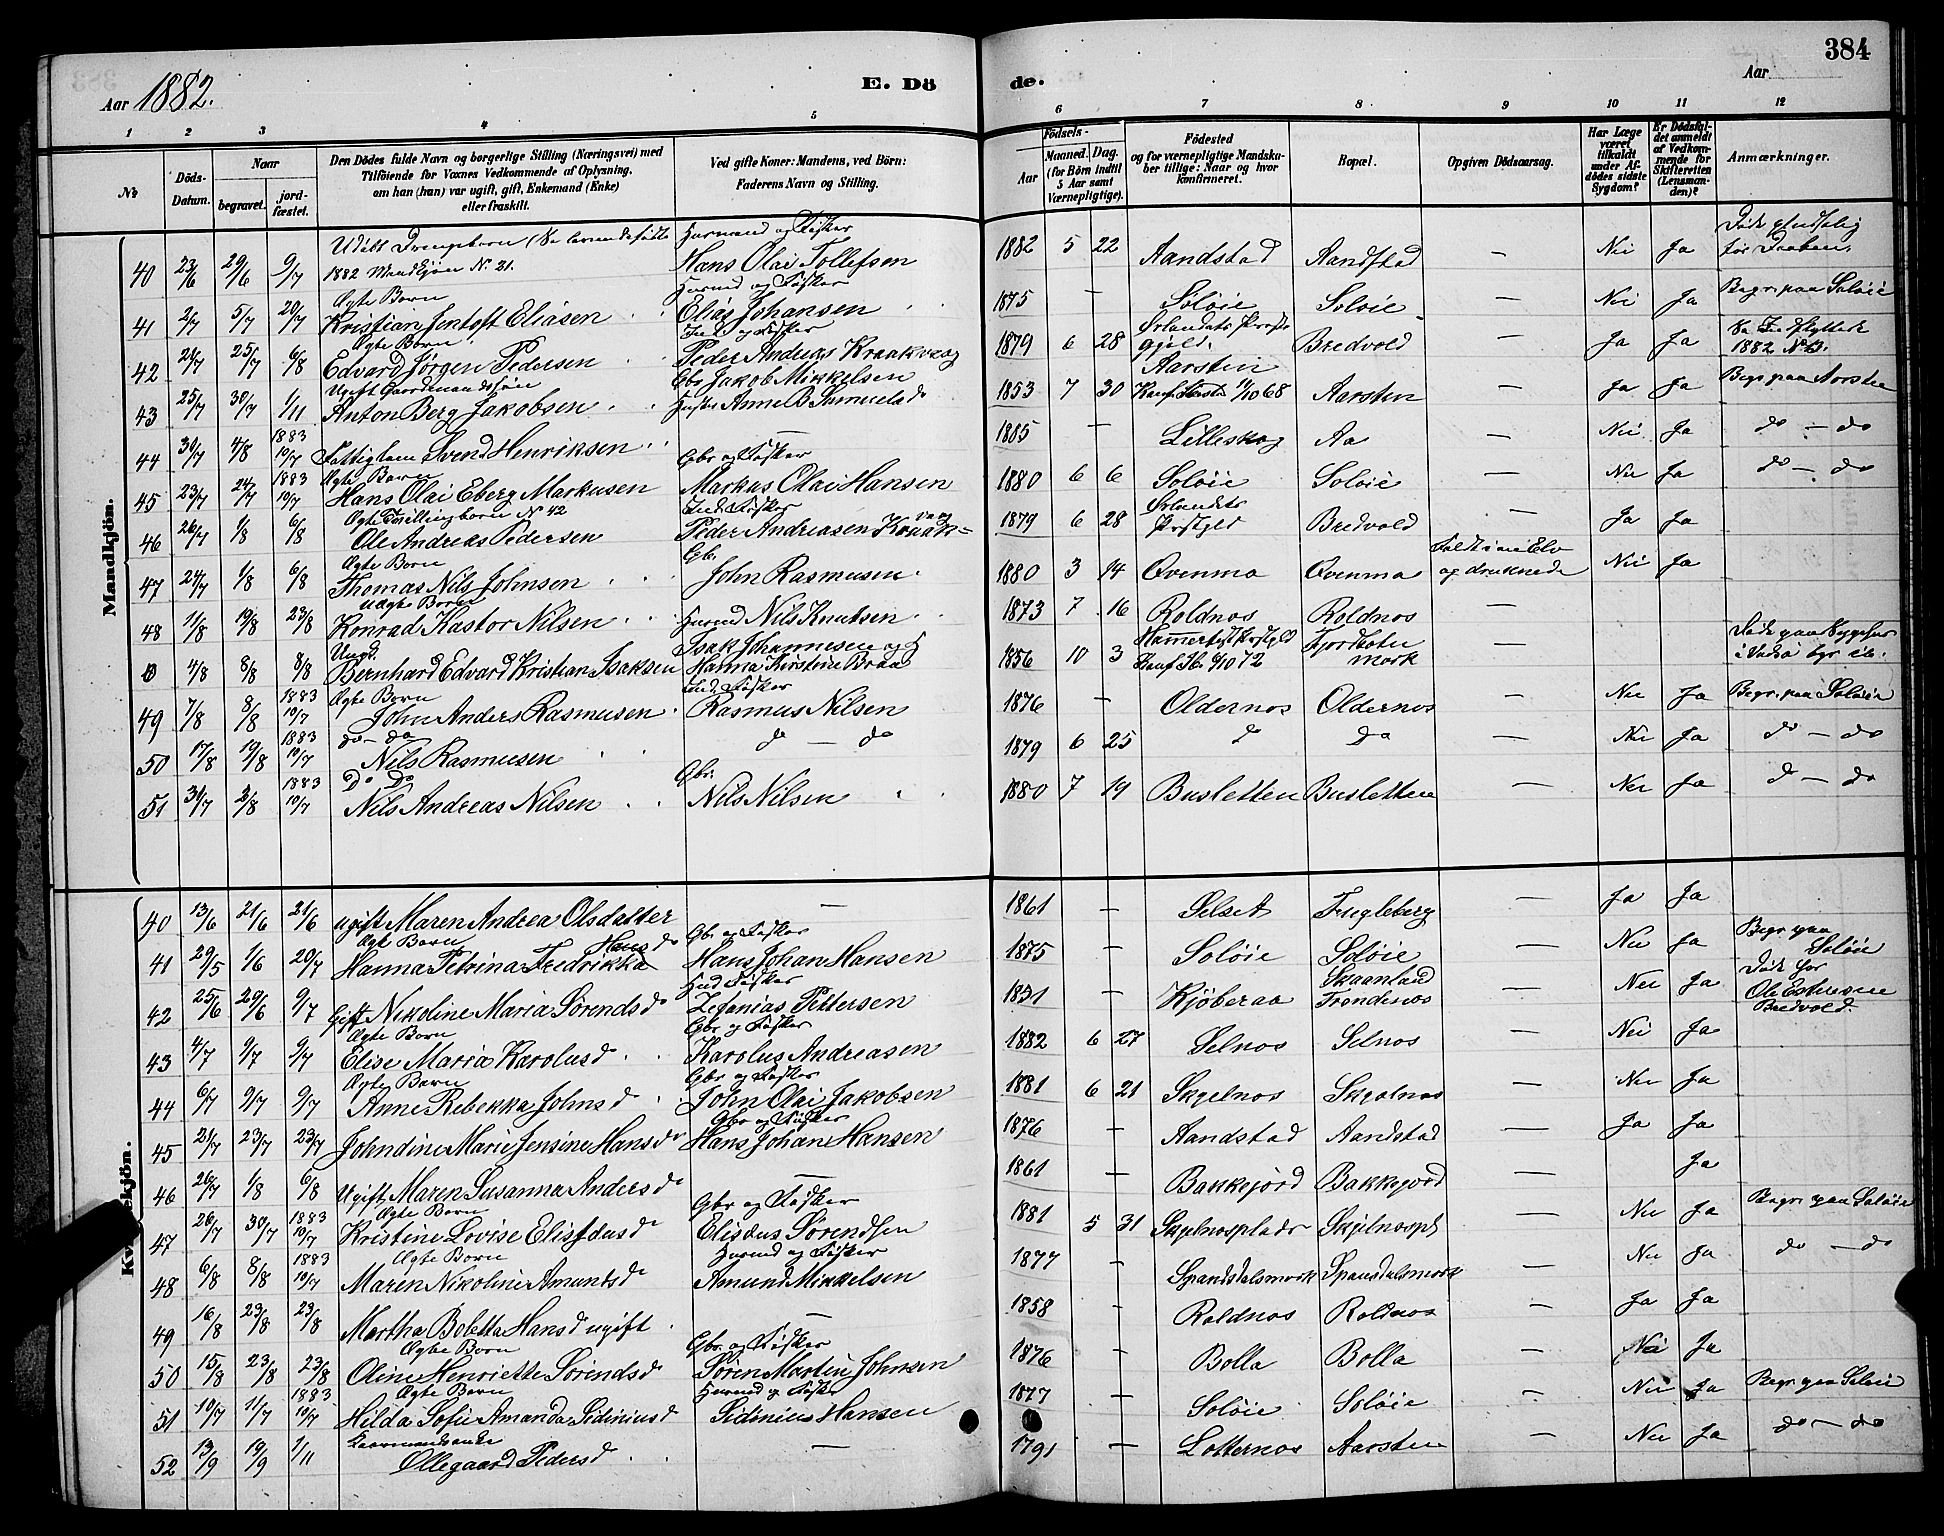 384
Aar 1882. E. Dö de. Aar
1 2 3 4 5 6 7 8 9 10 11 12
№ Döds-Datum. Naar begravet. jordfæstet. Den Dödes fulde Navn og borgerlige Stilling (Næringsvei) med Tilföiende for Voxnes Vedkommende af Oplysning, om han (hun) var ugift, gift, Enkemand (Enke) eller fraskilt. Ved gifte Koner: Mandens, ved Börn: Faderens Navn og Stilling. Födsels- Aar Maaned. Dag. (for Börn indtil 5 Aar samt Værnepligtige). Födested og for værnepligtige Mandskaber tillige: Naar og hvor konfirmeret. Bopæl. Opgiven Dödsaarsag. Har Læge været tilkaldt under Afdödes sidste Sygdom? Er Dödsfaldet anmeldt af Vedkommende for Skifteretten (Lensmanden)? Anmærkninger.
Mandkjön.
Udöbt Drengebarn Husmand og Fisker
40 23/6 29/6 9/7 1882 Mandkjön N. 21. Hans Olai Tollefsen 1882 5 22 Aandstad Aandstad — Nei Ja
Ægte Barn Husmd og Fisker
41 2/7 5/7 20/7 Kristian Jentoft Eliasen Elias Johansen 1875 — Solöie Solöie — Nei Ja Begr. paa Solöie
Ægte Barn Ind. og Fisker
42 21/7 25/7 6/8 Edvard Jörgen Pedersen Peder Andreas Kraakvaag 1879 6 28 Örlandets Præstegjeld. Bredvold — Ja Ja Se Indflyttede 1882
Ugift Gaardmandssön Gbr Jakob Mikkelsen
43 25/7 30/7 1/11 Anton Berg Jakobsen Hustr Anne B Samuelsd 1853 7 30 Aarsten Konf. 11/10 68 Aarsten — Ja Ja Begr. paa Aarsten
44 30/7 4/8 1883 10/7 Fattiglem Svend Henriksen — 1805 — Lilleskog Aa — Nei Ja do — do
Ægte Barn Gbr og Fisker
45 23/7 24/7 1883 10/7 Hans Olai Eberg Markusen Markus Olai Hansen 1880 6 6 Solöie Solöie — Nei Ja do — do
Ægte Tvillingbarn N 42 Ind. Fisker
46 26/7 1/8 6/8 Ole Andreas Pedersen Peder Andreasen Kraakvaag 1879 6 28 Örlandets Prstgld Bredvold — Ja Ja
Ægte Barn Gbr.
47 24/7 1/8 6/8 Thomas Nils Johnsen John Rasmusen 1880 3 14 Övenmo Övenmo Faldt i en Elv og druknede Nei Ja
Uægte Barn
48 11/8 19/8 23/8 Konrad Kastor Nilsen Husmd Nils Knutsen 1873 7 16 Roldnos Roldnos —
Ungk. Isak Johannesen og
0 4/8 8/8 8/8 Bernhard Edvard Kristian Isaksen Hanna Kirstine Braa 1856 10 3 Hammerfest Prstgld Fjordbotnmark — Döde paa Sygehus i Vadsö
Ægte Barn Ind. Fisker
49 7/8 8/8 1883 10/7 John Anders Rasmusen Rasmus Nilsen 1876 — Oldernos Oldernos — Nei Ja Begr. paa Solöie
do — do
50 17/8 19/8 1883 10/7 Nils Rasmusen do — do 1879 6 25 do Do — Nei Ja do — do
Do Do Gbr.
51 31/7 2/8 1883 10/7 Nils Andreas Nilsen Nils Nilsen 1880 7 19 Busletten Busletten — Nei Ja do — do
Kvindekjön.
40 13/6 21/6 21/6 ugift Maren Andrea Olsdatter — 1861 — Selset Fugleberg — Ja Ja
Ægte Barn Gbr og Fisker
41 29/5 1/6 20/7 Hanna Petrina Fredrikka Hansd Hans Johan Hansen 1875 — Solöie Solöie — Nei Ja Begr. paa Solöie
Ind. Fisker
42 25/6 29/6 9/7 Gift Nikoline Maria Sörendsd Zefanias Pettersen 1831 — Kjöberaa Skaanland Trondenos — Nei Ja Döde hos Ole Bredvold.
Ægte Barn Gbr og Fisker
43 4/7 9/7 9/7 Elise Maria Karolusd Karolus Andreasen 1882 6 27 Selnos Selnos — Nei Ja
Ægte Barn Gbr og Fisker
44 6/7 9/7 9/7 Anne Rebekka Johnsd John Olai Jakobsen 1881 6 21 Skjelnos Skjelnos — Nei Ja
Gbr og Fisker
45 21/7 23/7 23/7 Johndine Marie Jensine Hansd Hans Johan Hansen 1876 — Aandstad Aandstad — Ja Ja
46 26/7 1/8 6/8 Ugift Maren Susanna Andersd — 1861 — Bakkejord Bakkejord — Ja
Ægte Barn Gbr og Fisker
47 26/7 30/7 1883 10/7 Kristine Lovise Elisæusd Elisæus Sörendsen 1881 5 31 Skjelnosplads Skjelnospl — Nei Ja Begr. paa Solöie
Ægte Barn Husmd og Fisker
48 6/8 8/8 1883 10/7 Maren Nikoline Amundsd Amund Mikkelsen 1877 — Spandsdalsmark Spansdalsmark — Nei Ja do — do
49 16/8 23/8 23/8 Martha Boletta Hansd ugift — 1858 — Roldnos Roldnos — Ja Ja
Ægte Barn Gbr og Fisker
50 15/8 23/8 23/8 Oline Henriette Sörendsd Sören Martin Johnsen 1876 — Bolla Bolla — Nei Ja
Ægte Barn Husmd og Fisker
51 10/7 11/7 1883 10/7 Hilda Sofie Amanda Sidiniusd Sidinius Hansen 1877 — Solöie Solöie — Nei Ja Begr. paa Solöie
52 13/9 19/9 1/11 Ollegaard Pedersd — 1791 — Lotternos Aarsten — Nei Ja do — do